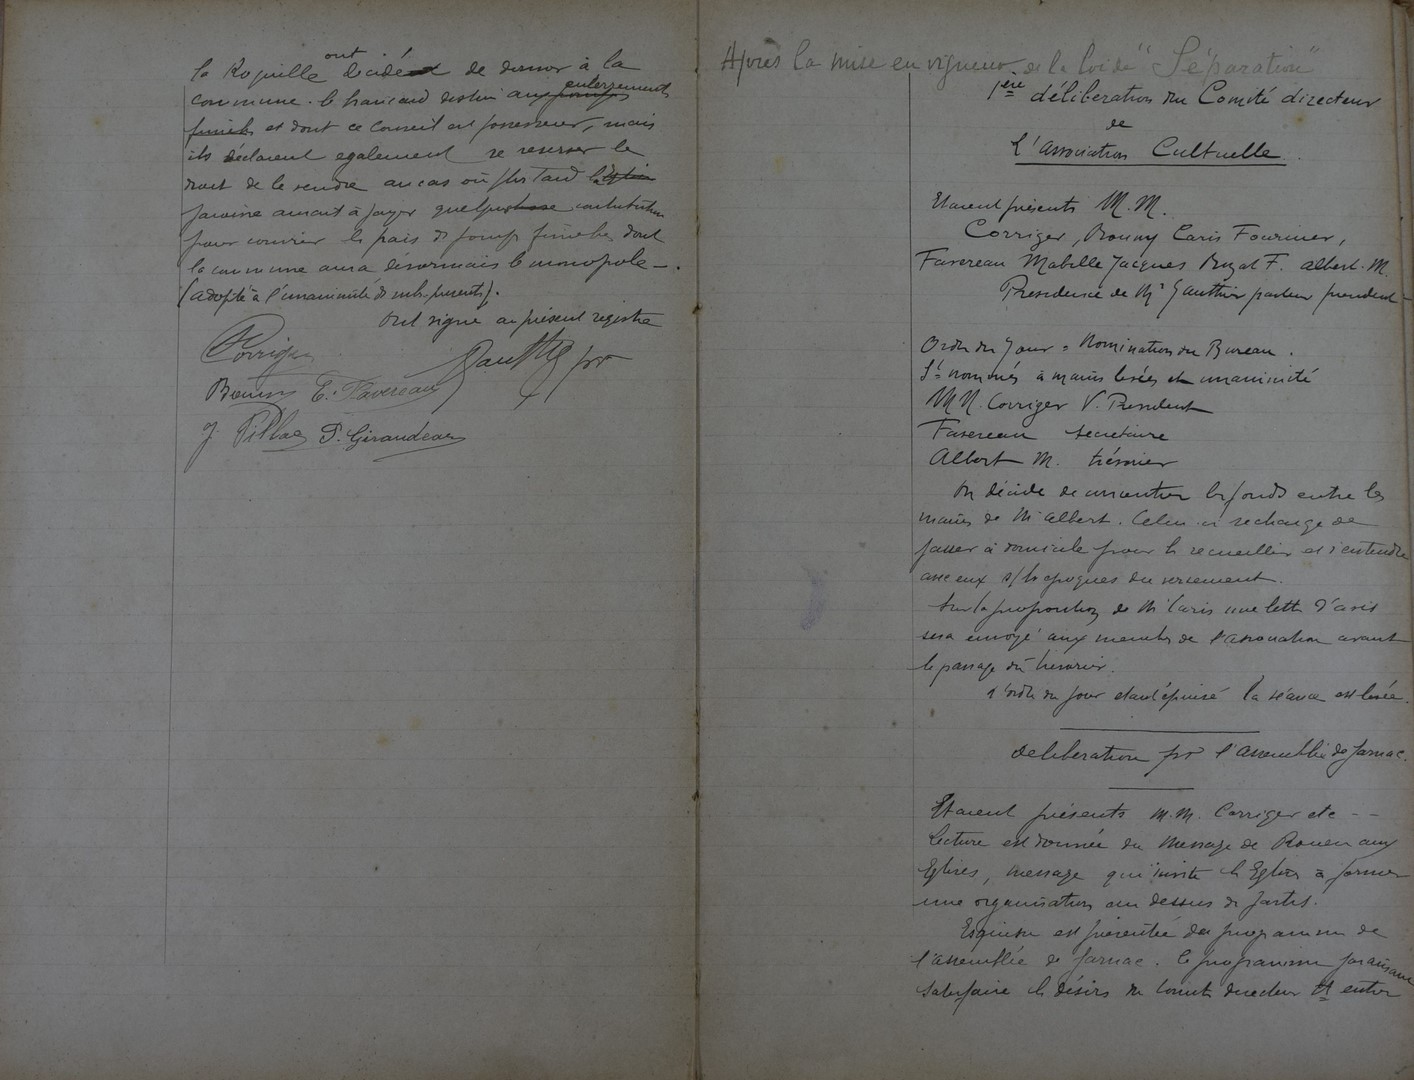 la Roquille ont décidé de donner à la
commune le brancard destiné aux enterrements
et dont ce Conseil est possesseur, mais
ils déclarent également se reserver le
droit de le rendre au cas où plus tard
paroisse aurait à payer quelque contribution
pour couvrir les frais de pompes funèbres dont
la commune aura désormais le monopole -.
(adopté à l'unanimité des memb. présents).
Ont signé au présent registre
Corriger
Gauthier psr
E. Favereau
J. Pillac P. Giraudeau
Après la mise en vigueur de la loi de "Séparation"
1ère délibération du Comité directeur
de
l'Association Cultuelle.
Etaient présents M.M.
Corriger, Caris Fournier,
Favereau Mabille Jacques F. Albert. M.
Présidence de Mr Gauthier pasteur président
Ordre du Jour = Nomination du Bureau.
St nommés à mains levées et unanimité
MM. Corriger V. President
Favereau secrétaire
Albert M. trésorier
On décide de concentrer les fonds entre les
mains de M. Albert. Celui ci se charge de
passer à domicile pour les recueillir et s'entendre
avec eux s/ les époques du versement.
Sur la proposition de M. Caris une lettre d'avis
sera envoyé aux membres de l'association avant
le passage du trésorier.
L'ordre du jour étant épuisé la séance est levée.
délibération pr l'assemblée de Jarnac.
Etaient présents M.M. Corriger etc - -
Lecture est donnée du Message de Rouen aux
Eglises, message qui invite les Eglises à former
une organisation au dessus des partis.
Esquisse est présentée du programme de
l'assemblée de Jarnac. Le programme paraissant
satisfaire les désirs du Comité directeur et entrer